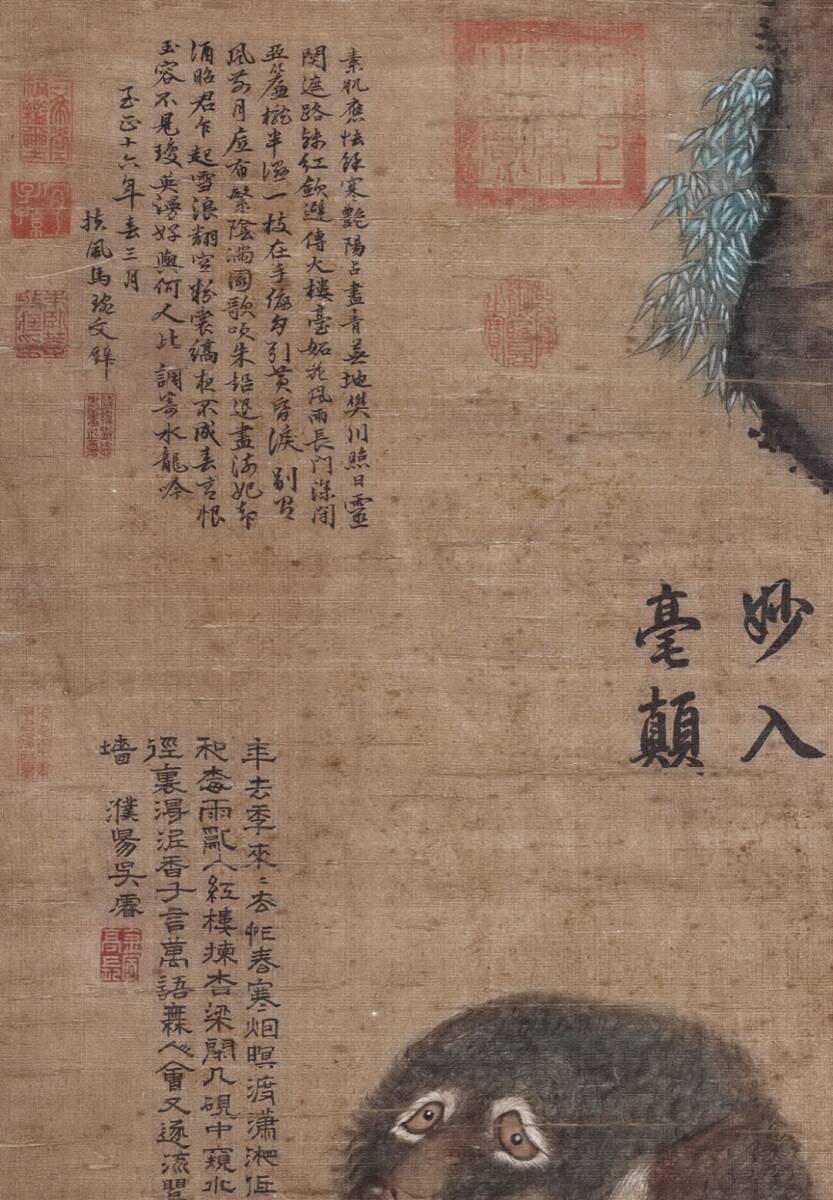 妙入
毫顛
素肌應怯餘寒艷陽占盡青蕪地樊川照日靈
關遮路殘紅斂避傳火樓臺妬花風雨長門深閉
亞簾櫳半濕一枝在手偏勾引黃昏淚 別有
風前月底布繁陰滿園歌吹朱鉛退盡潘妃却
酒昭君乍起雪浪翻空粉裳縞夜不成春意恨
玉容不見瓊英謾好與何人比 調寄水龍吟
至正十六年春三月
扶風馬琬文璧
年去年來〻去忙春寒烟暝渡瀟湘低
和梅雨亂入紅樓揀杏梁閒几硯中窺水
徑裏得泥香千言萬語無人會又逐流鶯
墻 濮陽吳睿